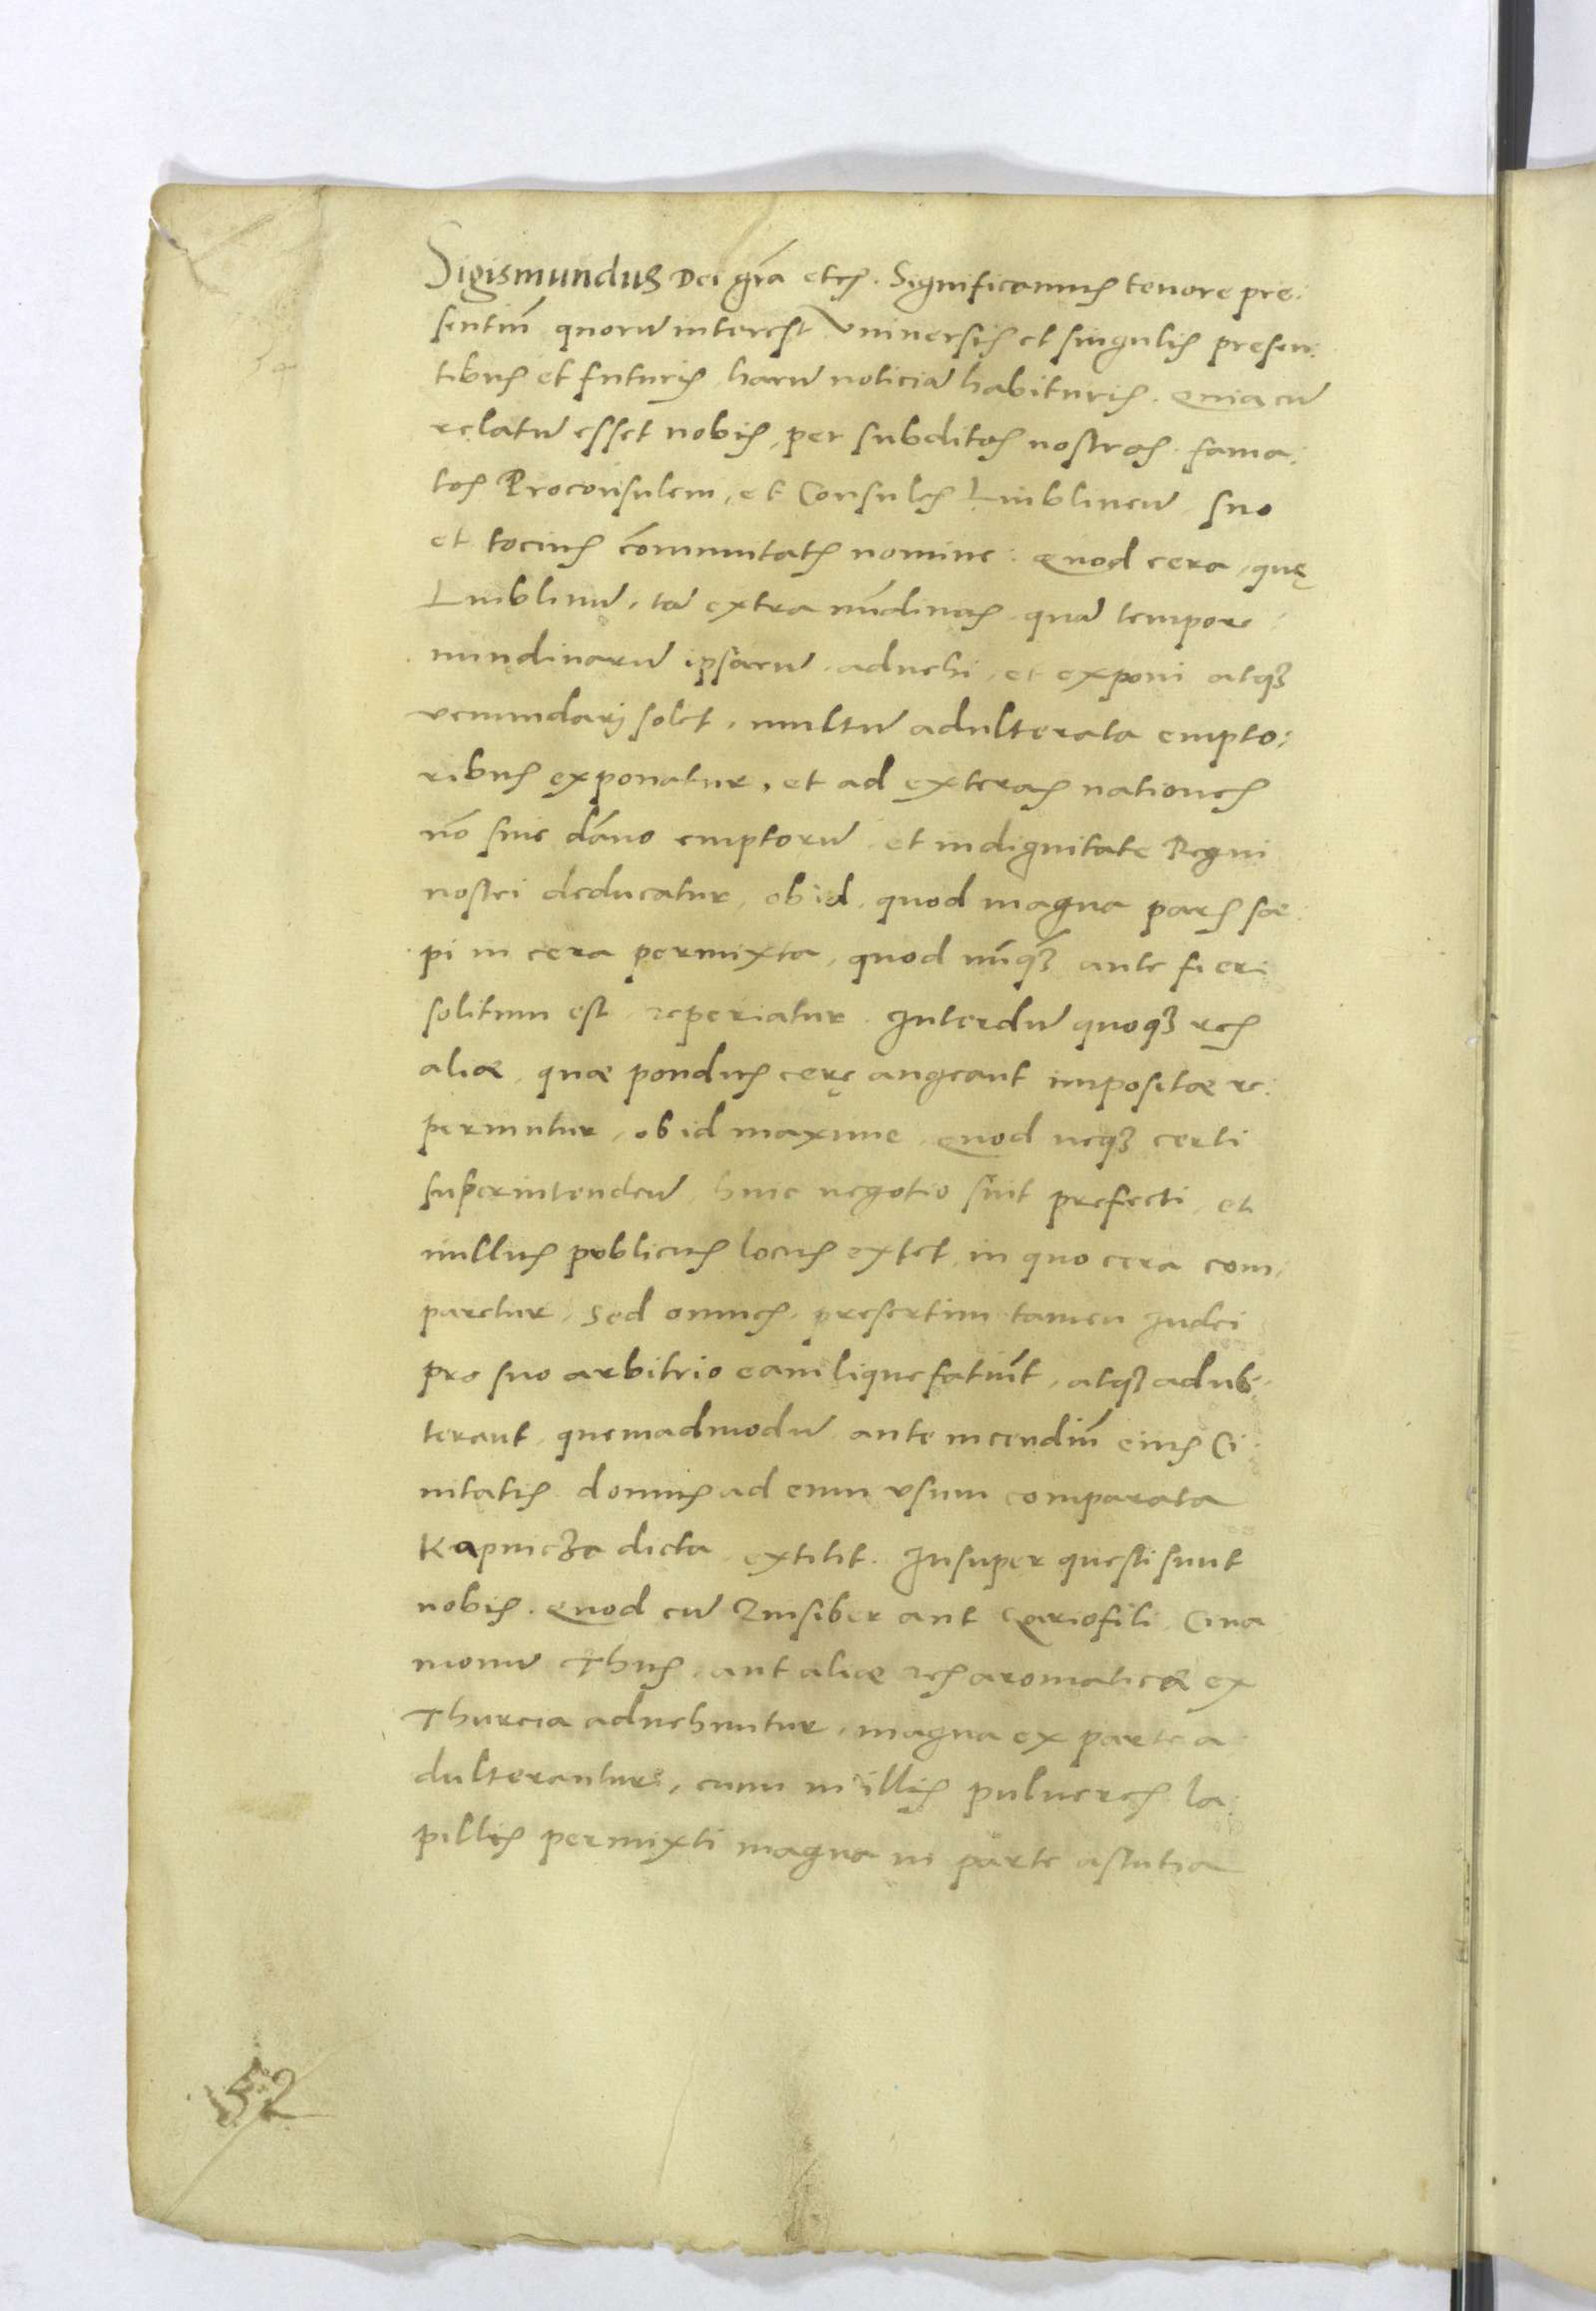 Sigismundus Dei gr̃a etc. Significamus tenore pre:
sentiũ quorũ interest Vniuersis et singulis presen:
tibus et futuris harũ noticiã habituris. Quia cũ
relatũ esset nobis, per subditos nostros fama:
tos Proconsulem, et Consules Lublinen̄ suo
et tocius cõmunitatis nomine: Quod cera, quę
Lublinũ, tã extra nũdinas quã tempore
nundinarũ ipsarũ aduehi, et exponi atqꝫ
venundarj solet, multũ adulterata empto:
ribus exponatur, et ad exteras nationes
nõ sine dãno emptorũ et indignitate Regni
nostri deducatur, ob id, quod magna pars sæ:
pi in cera permixta, quod nũqꝫ ante fieri
solitum est reperiatur. Interdũ quoqꝫ res
aliæ, quæ pondus cerę augeant impositæ re:
periuntur, ob id maxime, Quod neqꝫ certi
superintenden̄ huic negotio sint prefecti, et
nullus publicus locus extet, in quo cera com:
paretur, sed omnes, presertim tamen Judei
pro suo arbitrio eam liquefatiũt, atqꝫ adul:
terant, quemadmodũ ante incendiũ eius Ci
uitatis domus ad eum vsum comparata
Kapnicza dicta extitit. Insuper questi sunt
nobis. Quod cũ Zinsiber aut Cariofili, Cina
monũ Thus, aut aliæ res aromaticæ ex
Thurcia aduehuntur, magna ex parte a
dulterantur, cum in illis pulueres la:
pillis permixti magna in parte astutia
152